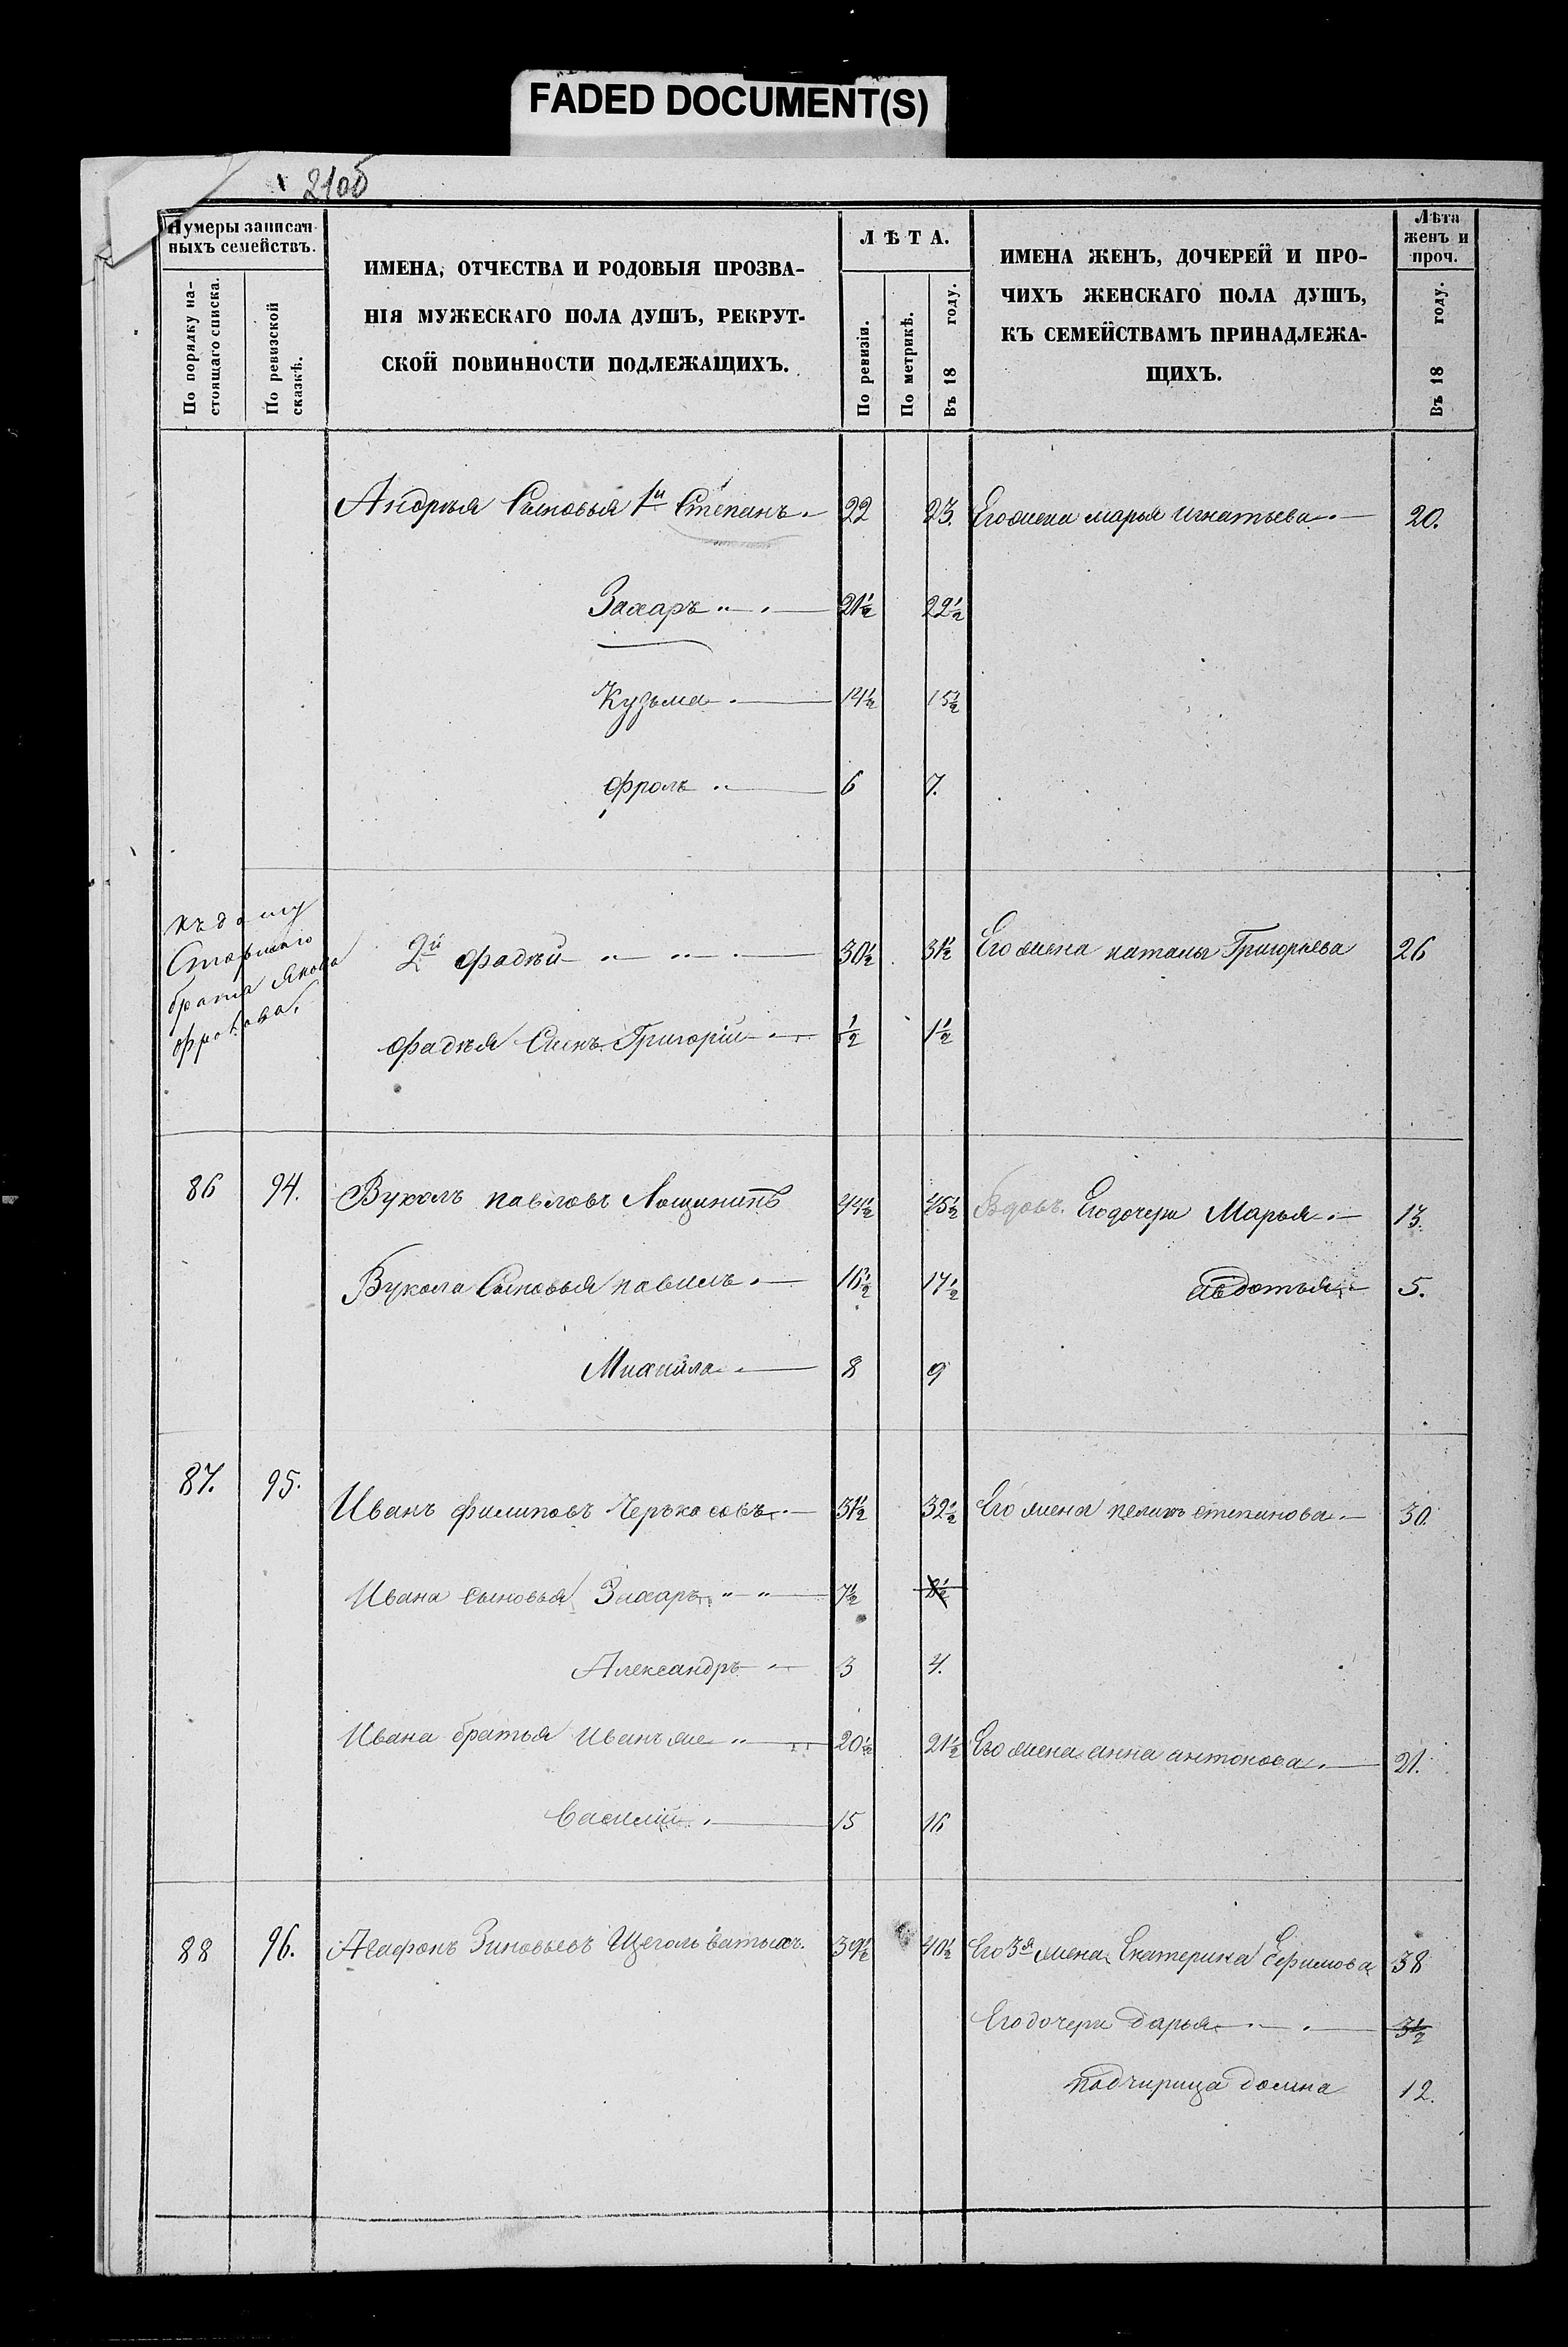 FADED DOCUMENT(S)
210об
Нумеры записан-
ныхъ семействъ.
По порядку на-
стоящаго списка.
По ревизской
сказкѣ.
ИМЕНА, ОТЧЕСТВА И РОДОВЫЯ ПРОЗВА-
НІЯ МУЖЕСКАГО ПОЛА ДУШЪ, РЕКРУТ-
СКОЙ ПОВИННОСТИ ПОДЛЕЖАЩИХЪ.
ЛѢТА.
По ревизіи.
По метрикѣ.
Въ 18 году.
ИМЕНА ЖЕНЪ, ДОЧЕРЕЙ И ПРО-
ЧИХЪ ЖЕНСКАГО ПОЛА ДУШЪ,
КЪ СЕМЕЙСТВАМЪ ПРИНАДЛЕЖА-
ЩИХЪ.
Лѣта
женъ и
проч.
Въ 18 году.
Андрѣя Сыновья 1й Степанъ 22 23. Его жена марья игнатьева 20.
Захаръ 21½ 22½
Кузьма 14½ 15½
Фролъ 6 7.
къ дому
Старшаго
брата Якова
Фролова.
2й Фадѣй 30½ 31½ Его жена наталья Григорьева 26
Фадѣя Сынъ Григорій ½ 1½
86 94. Вуколъ павловъ Лощининъ 44½ 45½ Вдовъ. Его дочери Марья 13.
Вукола Сыновья павилъ 16½ 17½ авдотья 5.
Михаила 8 9
87. 95. Иванъ филиповъ Черъкасовъ 31½ 32½ Его жена пелагѣ степанова 30.
Ивана сыновья Захаръ 7½ 8½
Александръ 3 4.
Ивана братья Иванъ же 20½ 21½ Его жена анна антонова 21.
Василій 15 16
88 96. Агафонъ Зиновьевъ Щегольватыхъ. 39½ 40½ Его 3я жена Екатерина Ефимова 38
Его дочери дарья 3½
падчирица домна 12.